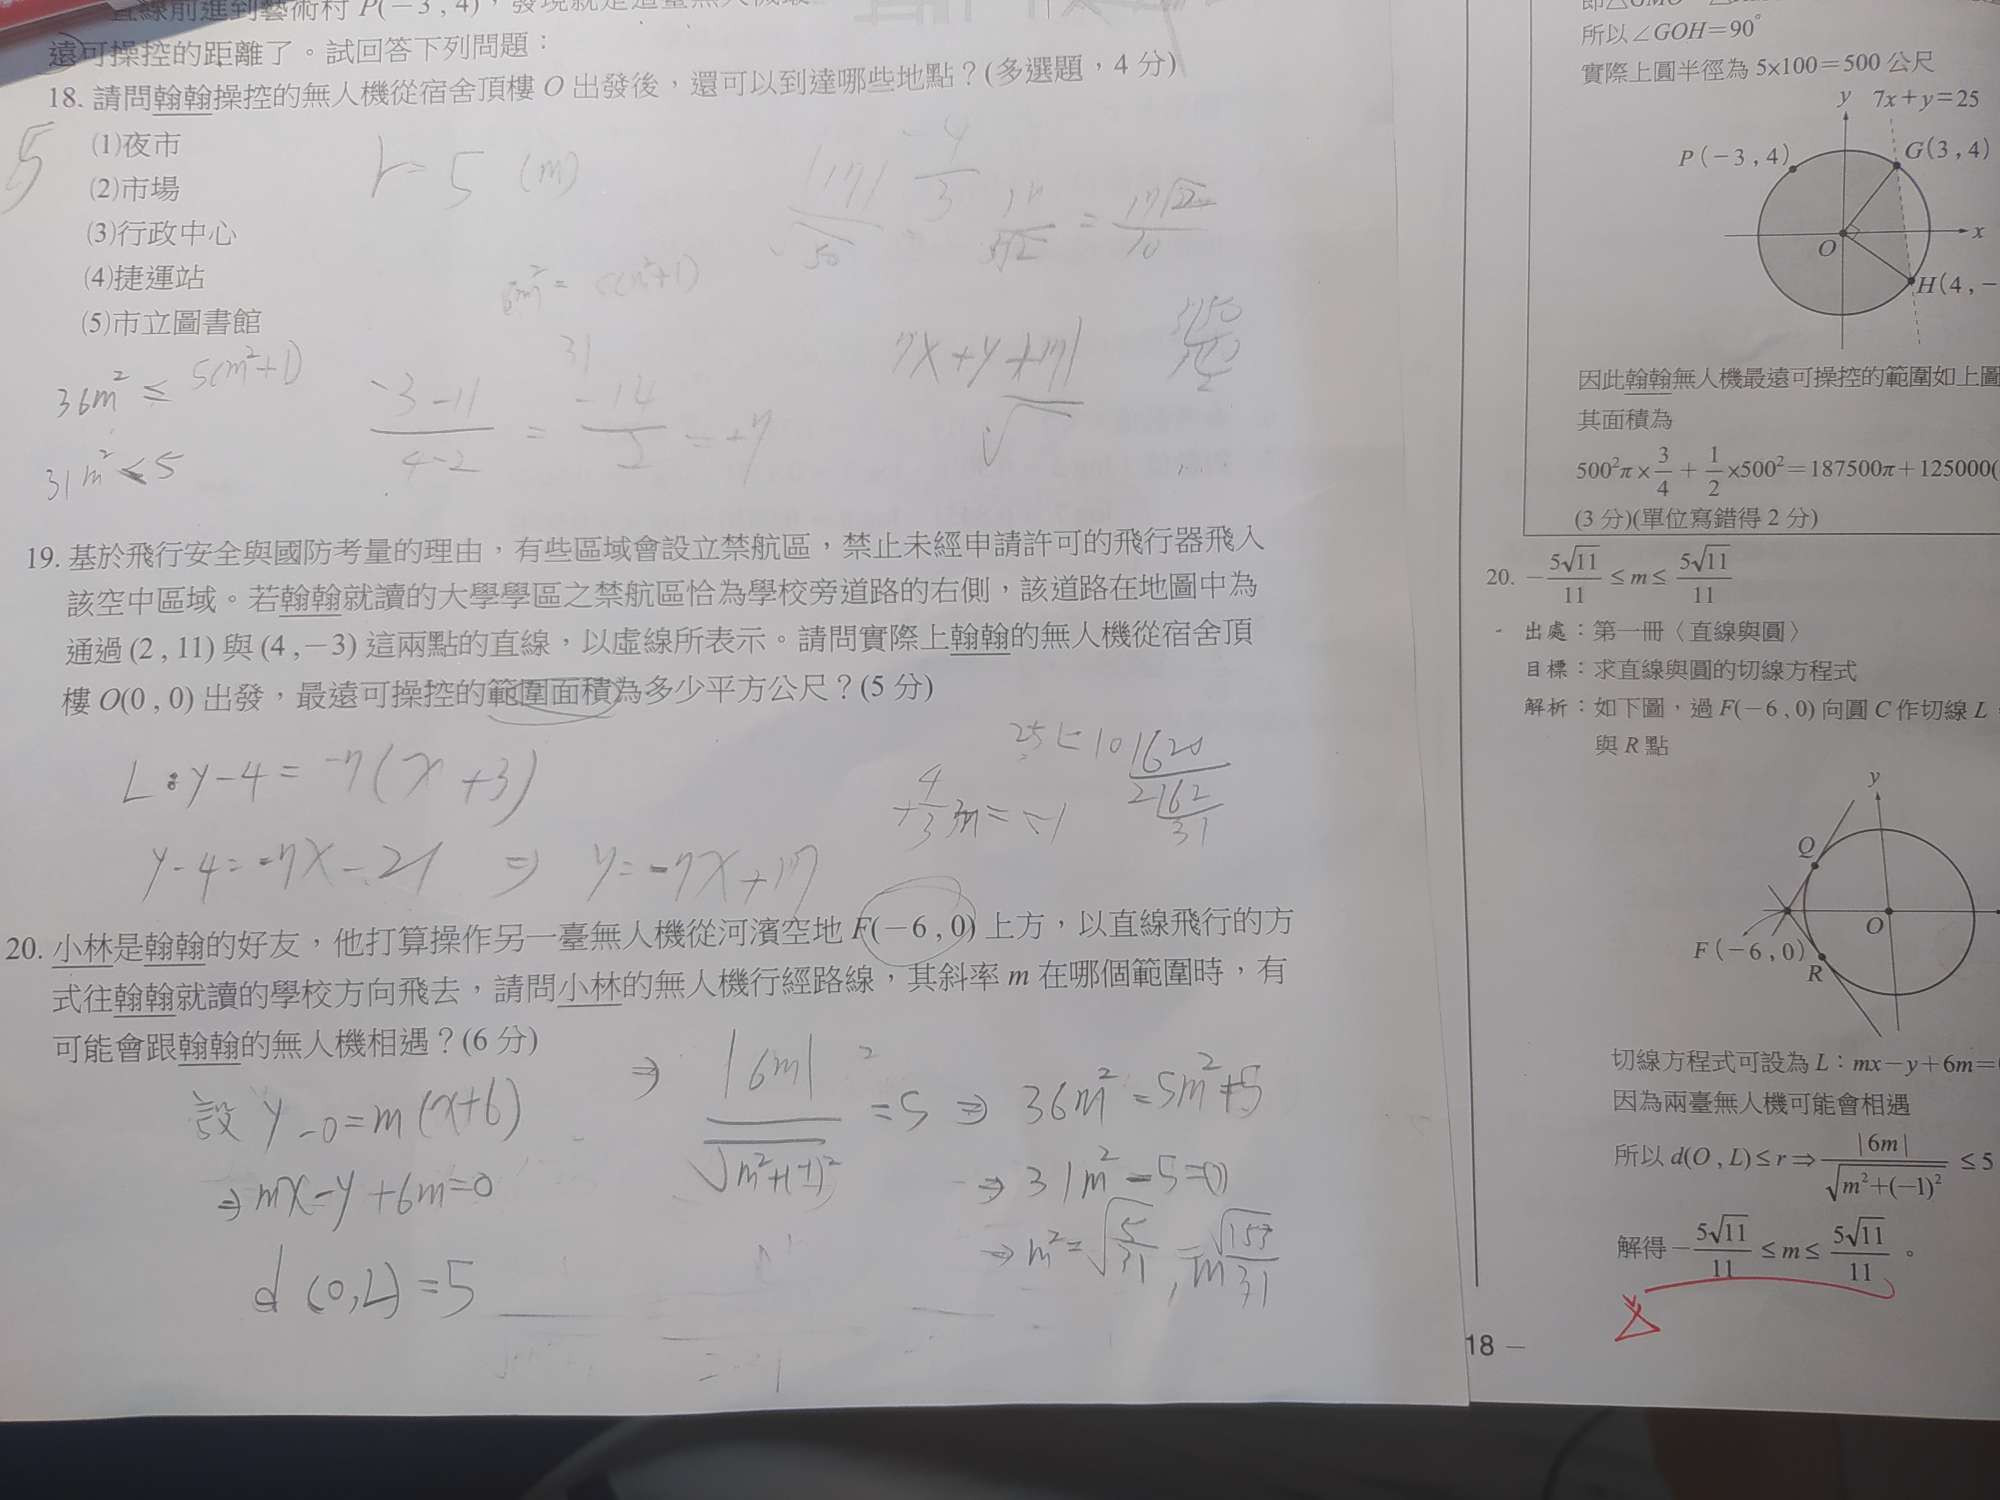 直線前進到藝術村 P(−3 , 4)，發現就是這臺無人機最
遠可操控的距離了。試回答下列問題：
18. 請問翰翰操控的無人機從宿舍頂樓 O 出發後，還可以到達哪些地點？(多選題，4 分)
(1)夜市
(2)市場
(3)行政中心
(4)捷運站
(5)市立圖書館
5
r = 5 (m)
36m² ≤ 5(m²+1)
31m² ≤ 5
-3-11 / 4-2 = -14 / 2 = -7
19. 基於飛行安全與國防考量的理由，有些區域會設立禁航區，禁止未經申請許可的飛行器飛入
該空中區域。若翰翰就讀的大學學區之禁航區恰為學校旁道路的右側，該道路在地圖中為
通過 (2 , 11) 與 (4 , −3) 這兩點的直線，以虛線所表示。請問實際上翰翰的無人機從宿舍頂
樓 O(0 , 0) 出發，最遠可操控的範圍面積為多少平方公尺？(5 分)
L : y-4 = -7(x+3)
y-4 = -7x-21 ⇒ y = -7x+17
20. 小林是翰翰的好友，他打算操作另一臺無人機從河濱空地 F(−6 , 0) 上方，以直線飛行的方
式往翰翰就讀的學校方向飛去，請問小林的無人機行經路線，其斜率 m 在哪個範圍時，有
可能會跟翰翰的無人機相遇？(6 分)
設 y-0 = m(x+6)
⇒ mx-y+6m=0
d(O,L)=5
⇒ |6m| / √(m²+(-1)²) = 5 ⇒ 36m² = 5m²+5
⇒ 31m²-5=0
⇒ m² = √(5/31)
所以∠GOH＝90°
實際上圓半徑為 5×100＝500 公尺
y 7x＋y＝25
P(−3 , 4)
G(3 , 4)
x
O
H(4 , −
因此翰翰無人機最遠可操控的範圍如上圖
其面積為
500²π×3/4＋1/2×500²＝187500π＋125000(
(3 分)(單位寫錯得 2 分)
20. −5√11/11 ≤ m ≤ 5√11/11
出處：第一冊〈直線與圓〉
目標：求直線與圓的切線方程式
解析：如下圖，過 F(−6 , 0) 向圓 C 作切線 L
與 R 點
y
Q
O
F(−6 , 0)
R
切線方程式可設為 L：mx−y＋6m＝
因為兩臺無人機可能會相遇
所以 d(O , L) ≤ r ⇒ |6m| / √(m²＋(−1)²) ≤ 5
解得 −5√11/11 ≤ m ≤ 5√11/11。
18 −